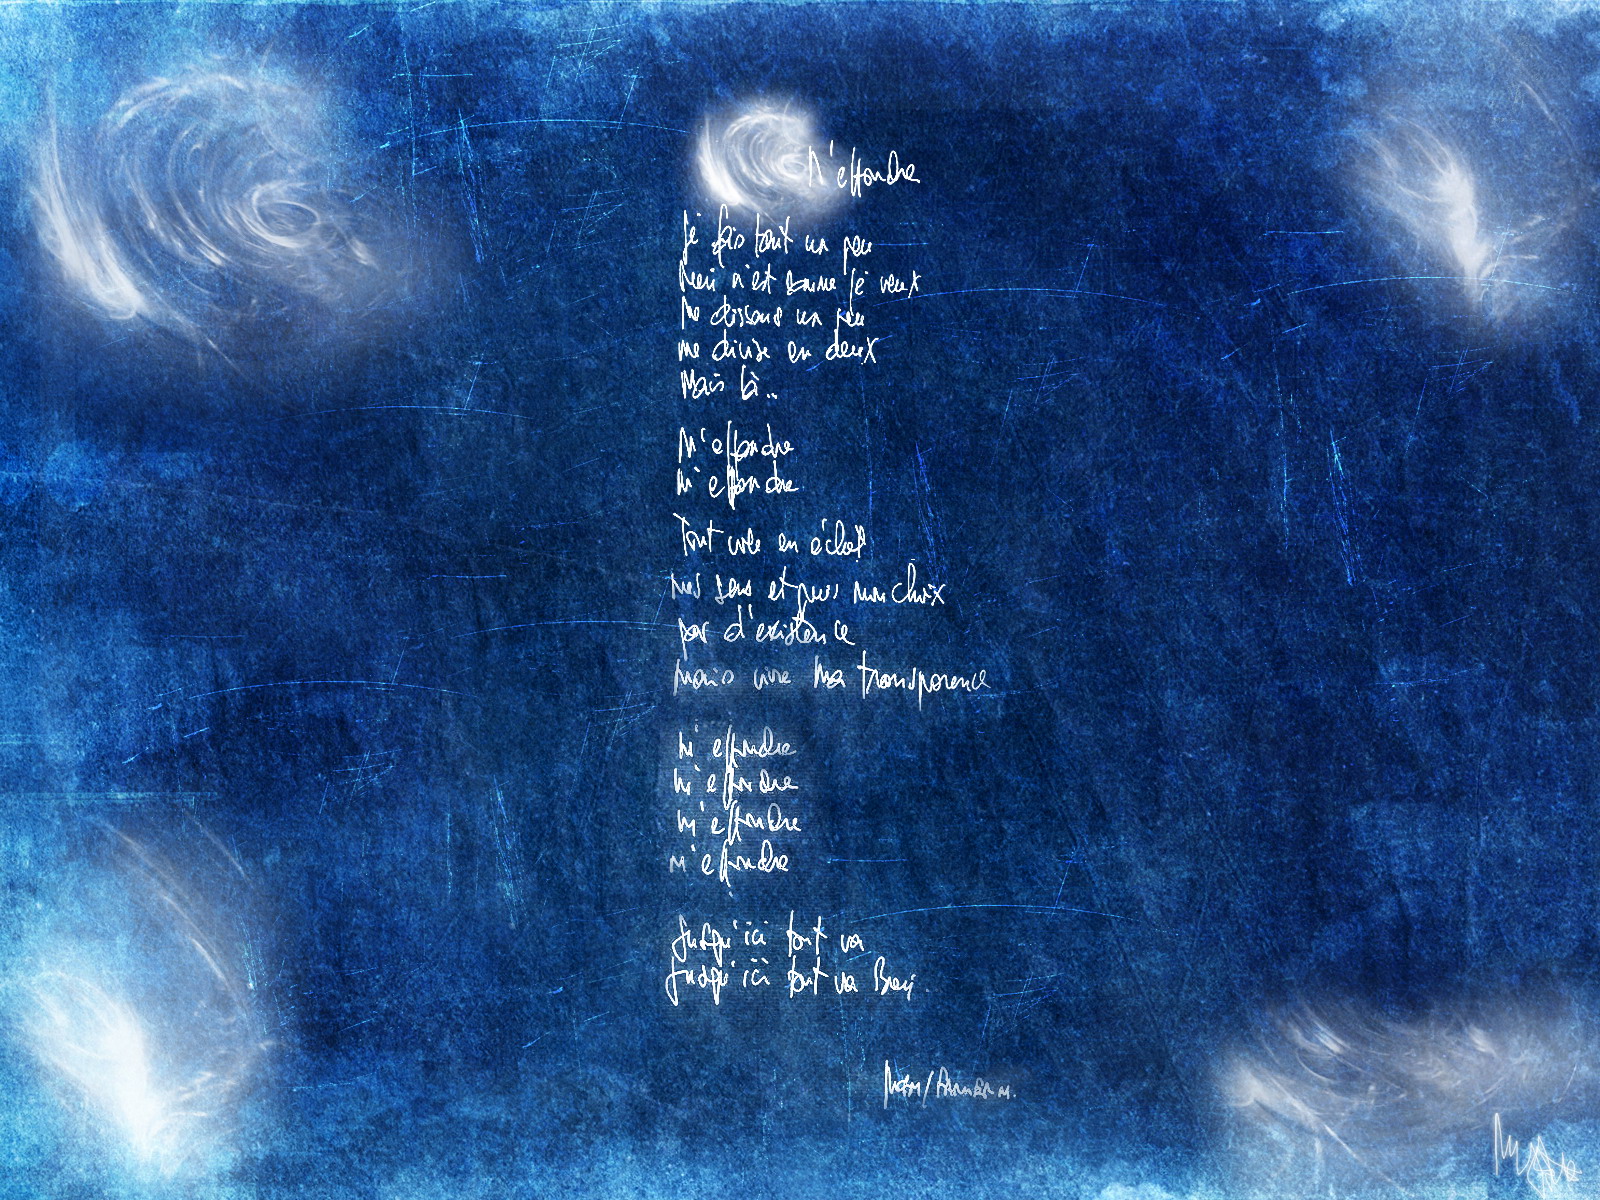 M'effondre
Je fais tout un peu
Rien n'est comme je veux
Me dissous un peu
me divise en deux
Mais là..
M'effondre
M'effondre
Tout vole en éclat
mes sens et puis mon choix
pas d'existence
mais vive ma transparence
M'effondre
M'effondre
M'effondre
M'effondre
Jusqu'ici tout va
Jusqu'ici tout va Bien.
/FARMER M.